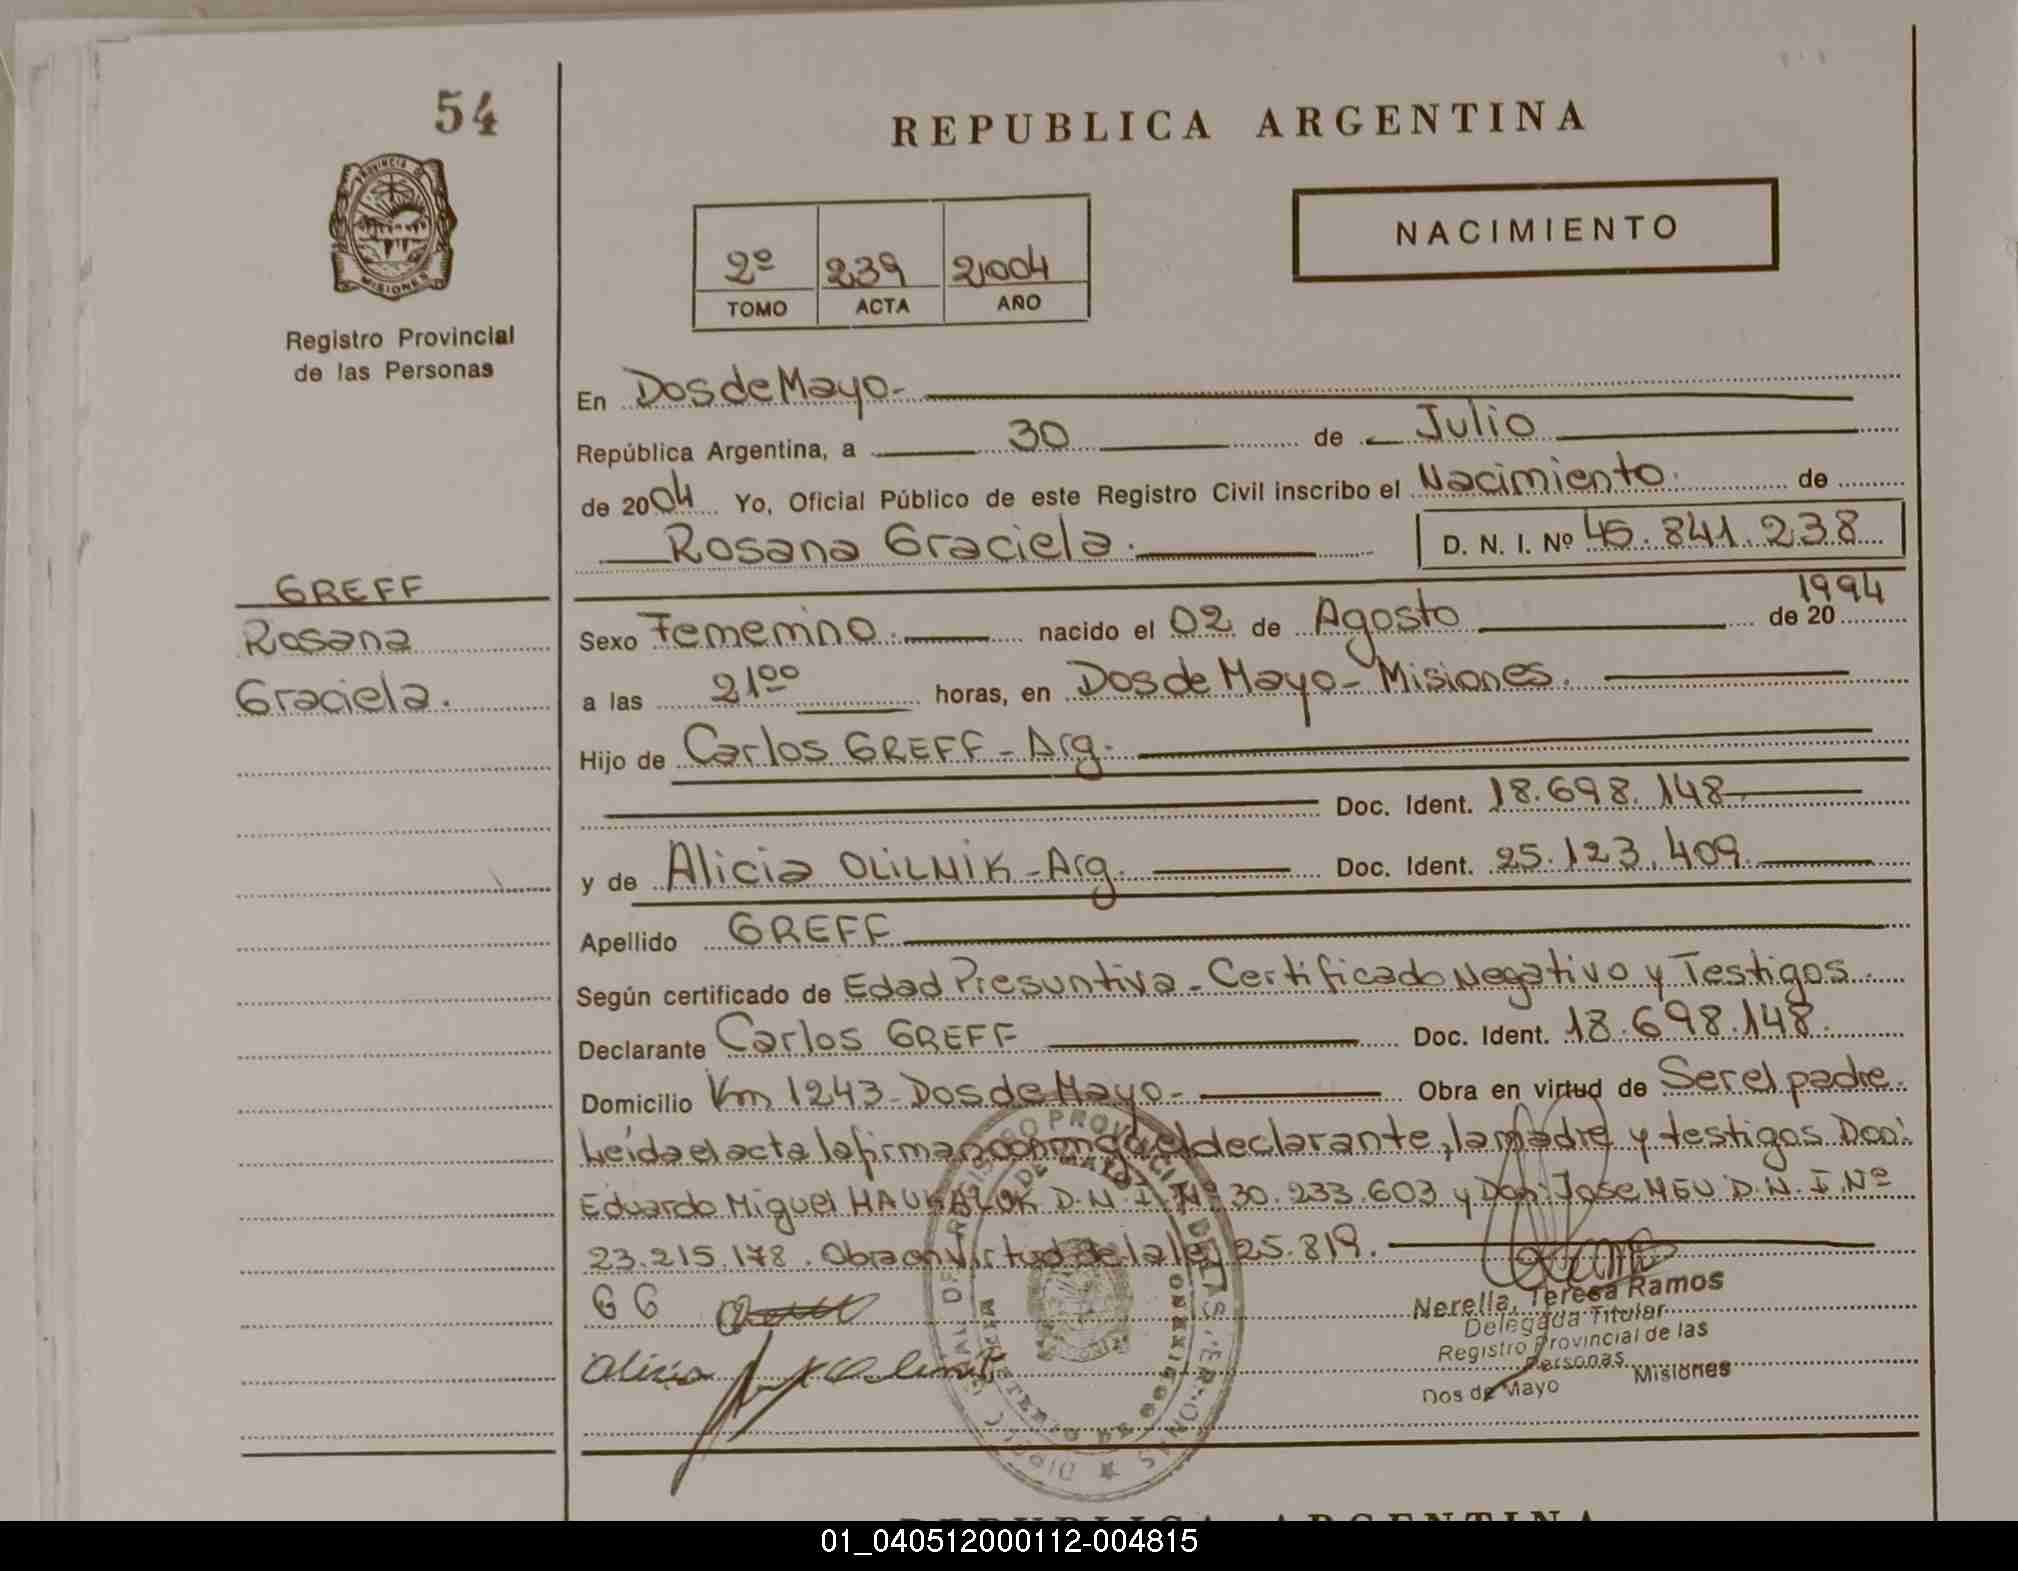 54
REPUBLICA ARGENTINA
PROVINCIA DE
MISIONES
NACIMIENTO
2º 239 2004
TOMO ACTA AÑO
Registro Provincial
de las Personas
En Dos de Mayo-
República Argentina, a 30 de Julio
de 2004 Yo, Oficial Público de este Registro Civil inscribo el Nacimiento. de
Rosana Graciela. D. N. I. Nº 45.841.238
GREFF
Rosana
Graciela.
1994
Sexo Femenino. nacido el 02 de Agosto de 20
a las 21ºº horas, en Dos de Mayo- Misiones.
Hijo de Carlos GREFF - Arg.
Doc. Ident. 18.698.148
y de Alicia OLILNIK - Arg. Doc. Ident. 25.123.409.
Apellido GREFF
Según certificado de Edad Presuntiva - Certificado Negativo y Testigos.
Declarante Carlos GREFF Doc. Ident. 18.698.148.
Domicilio Km 1243 - Dos de Mayo- Obra en virtud de Ser el padre.
Leída el acta la firman conmigo el declarante, la madre y testigos Don:
Eduardo Miguel D.N.I. Nº 30.233.603 y Don: Jose NEU D.N.I. Nº
23.215.178. Obra en virtud de la ley 25.819.
G G
Alicia
Nerella, Teresa Ramos
Delegada Titular
Registro Provincial de las
Personas
Dos de Mayo Misiones
REPUBLICA ARGENTINA
01_040512000112-004815